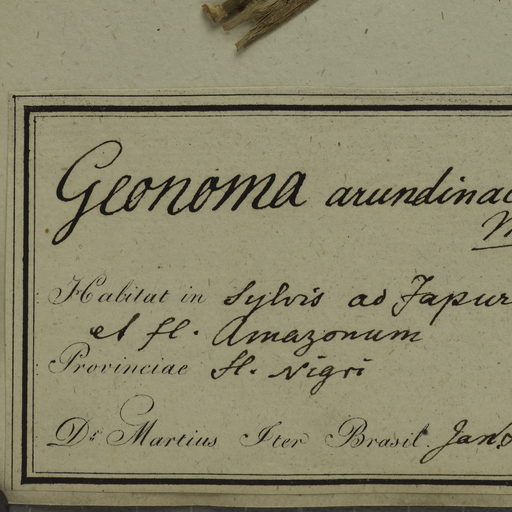 Geonoma arundinac
M
Habitat in sylvis ad Japur
et fl. Amazonum
Provinciae fl. Nigri
Dr. Martius Iter Brasil. Jan.